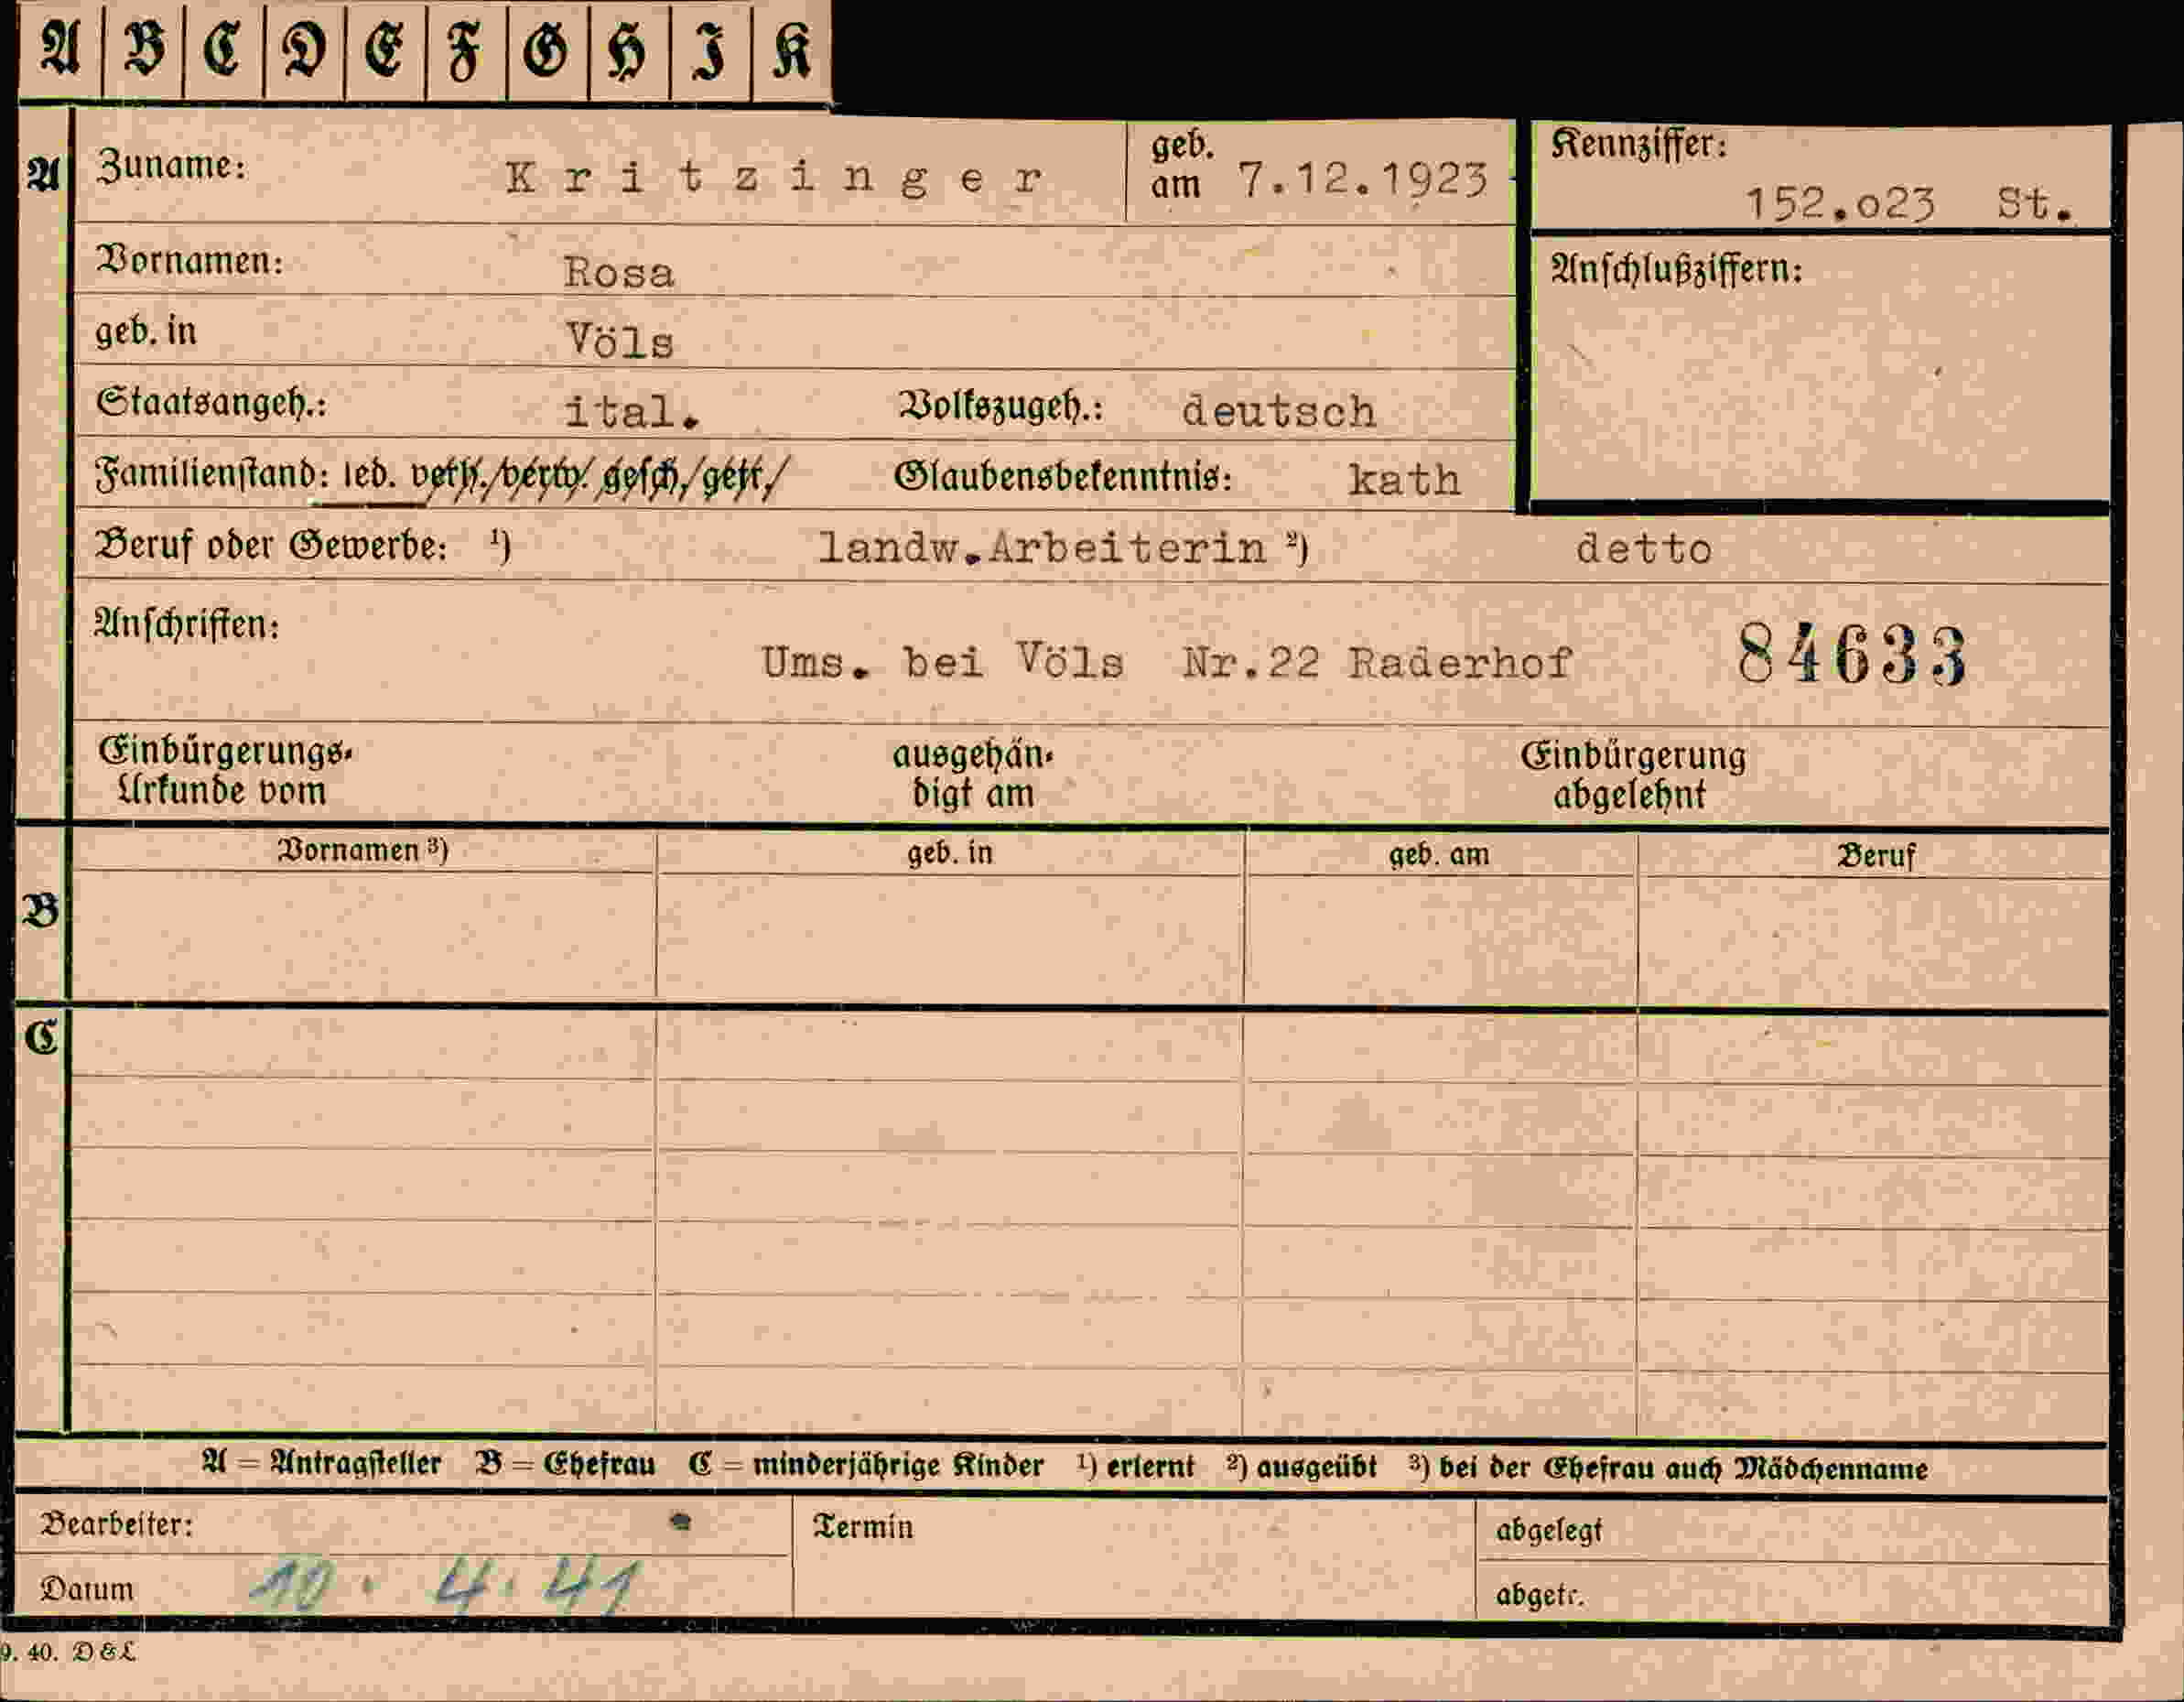 A B C D E F G H I K
A Zuname: Kritzinger geb. am 7.12.1923
Kennziffer: 152.o23 St.
Vornamen: Rosa
Anschlußziffern:
geb. in Völs
Staatsangeh.: ital. Volkszugeh.: deutsch
Familienstand: led. verh./verw. gesch./getr./ Glaubensbekenntnis: kath
Beruf oder Gewerbe: ¹) landw.Arbeiterin ²) detto
Anschriften: Ums. bei Völs Nr.22 Raderhof 84633
Einbürgerungs-Urkunde vom ausgehändigt am Einbürgerung abgelehnt
Vornamen ³) geb. in geb. am Beruf
B
C
A = Antragsteller B = Ehefrau C = minderjährige Kinder ¹) erlernt ²) ausgeübt ³) bei der Ehefrau auch Mädchenname
Bearbeiter: Termin abgelegt
Datum 10. 4. 41 abgetr.
9. 40. D & L